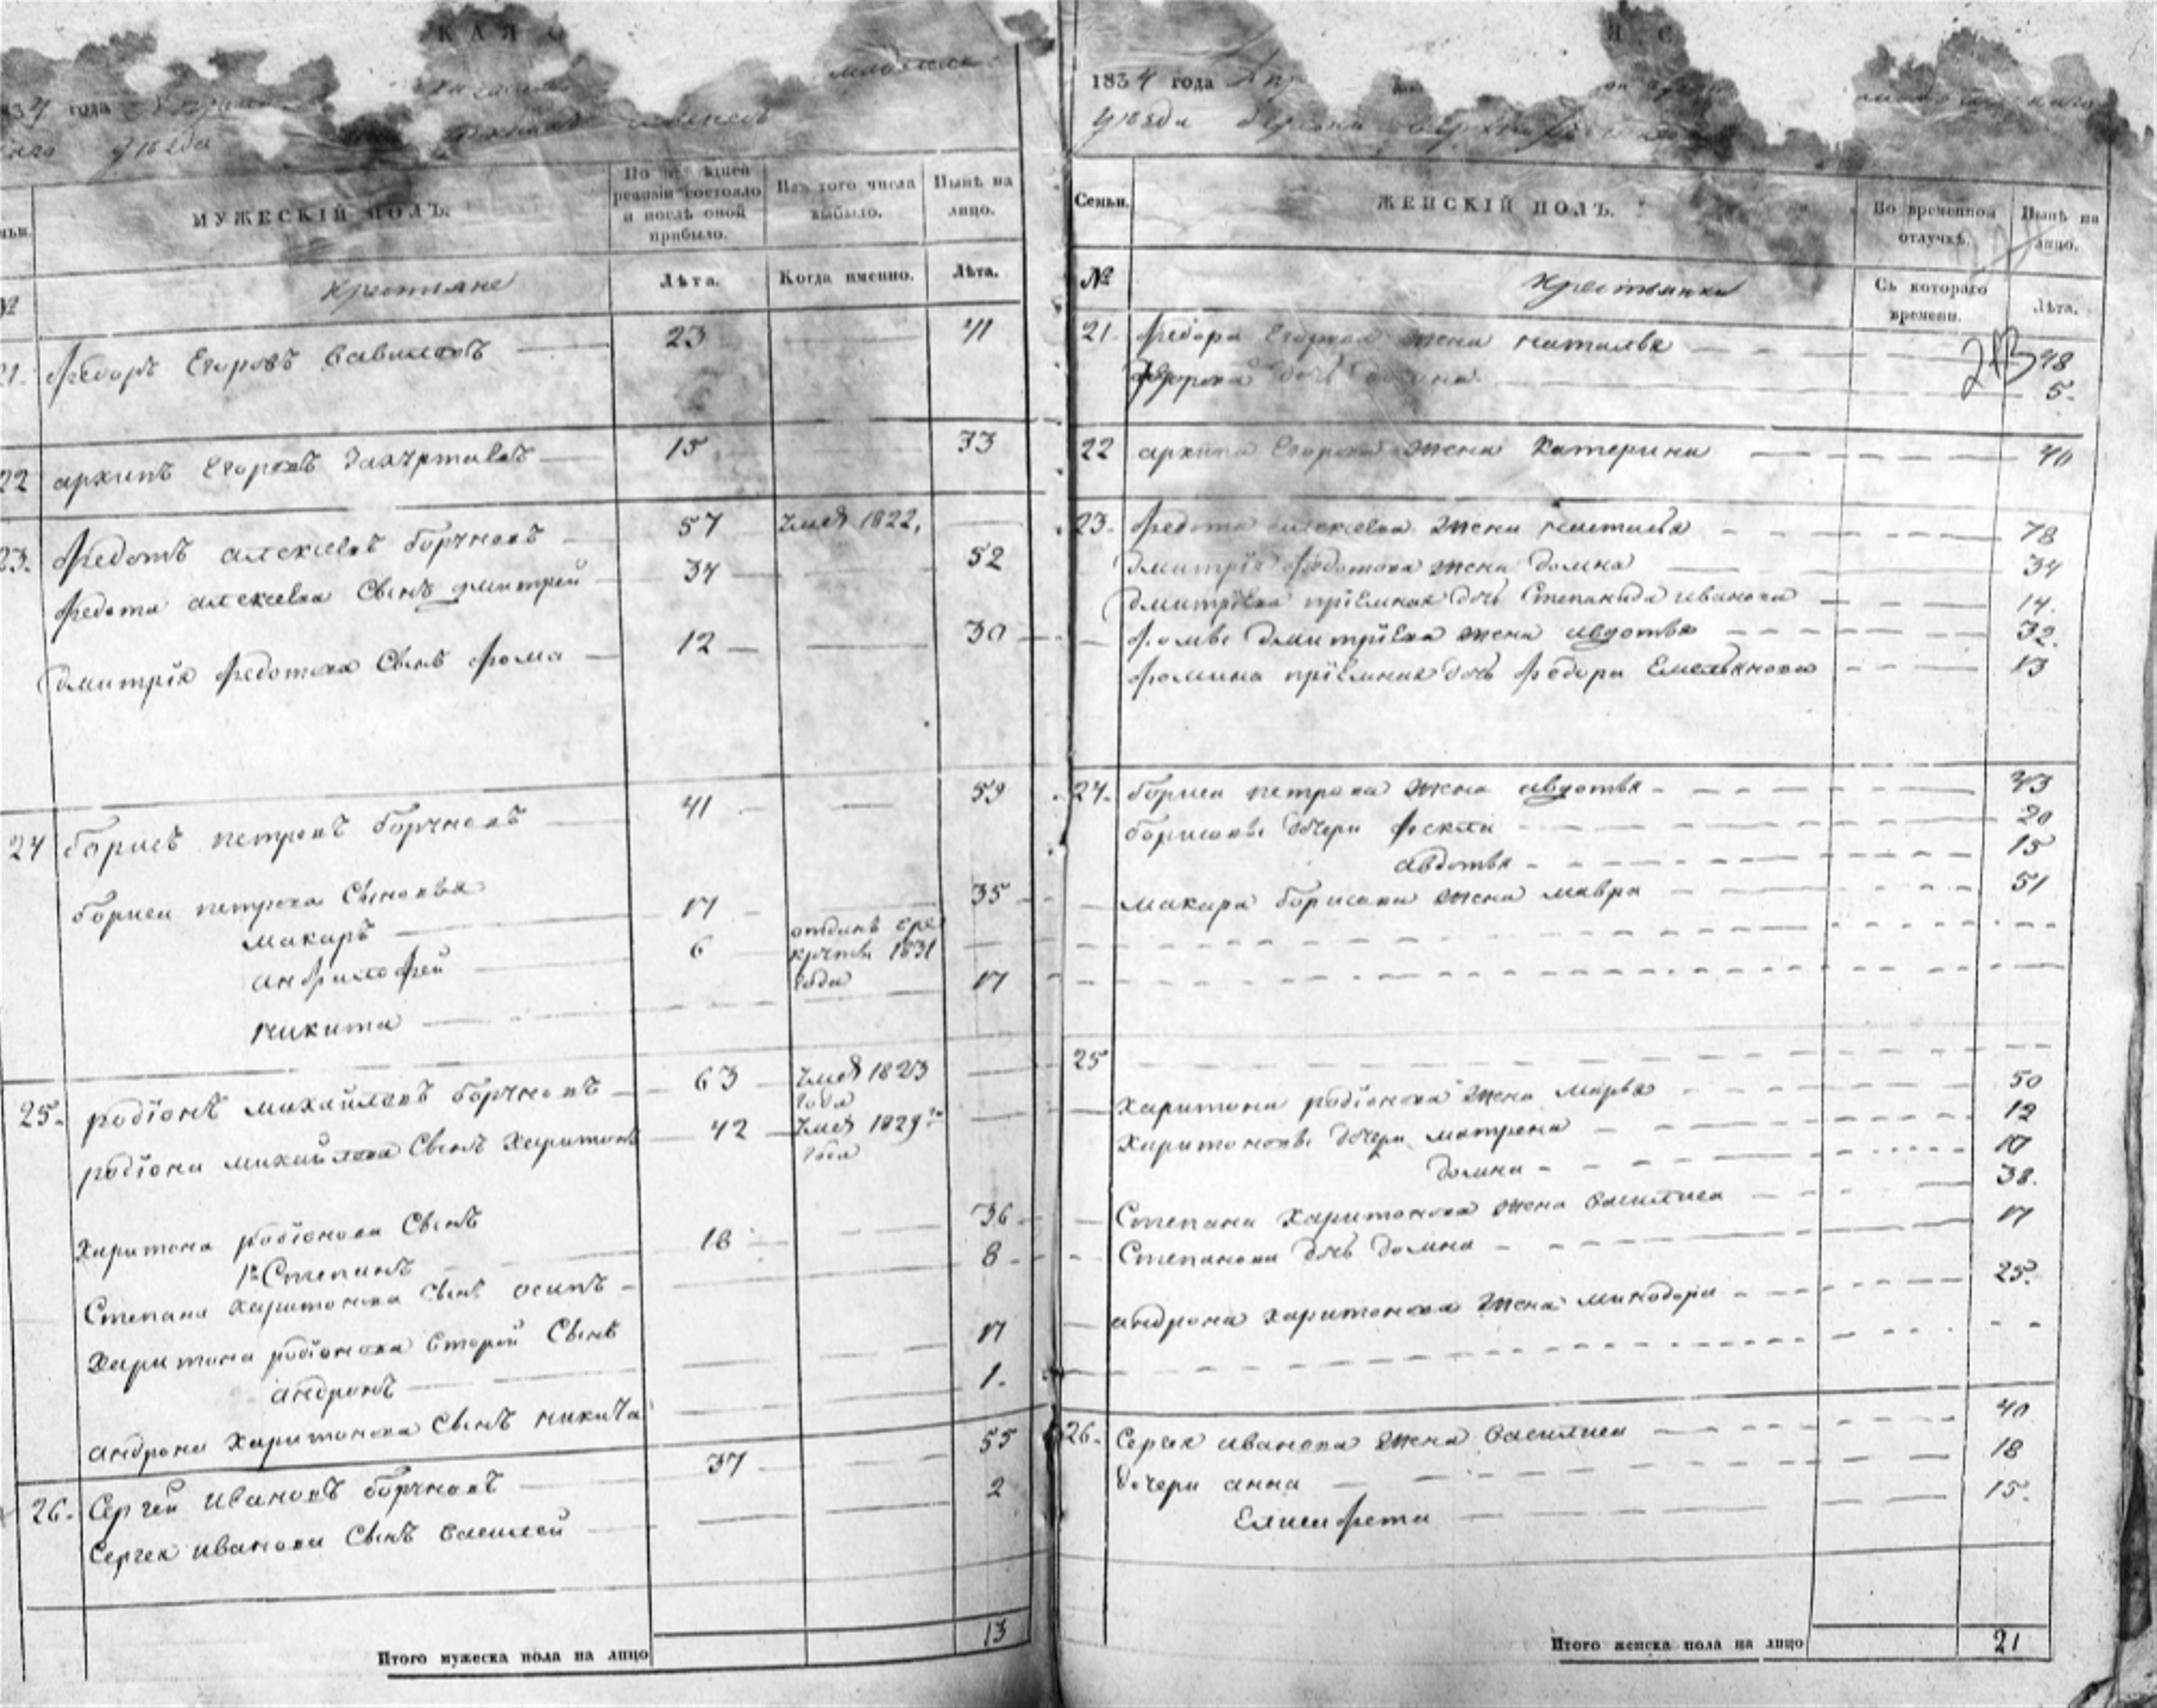 КАЯ
834 года
уѣзда
МУЖЕСКІЙ ПОЛЪ.
По ревизіи состояло и послѣ оной прибыло.
Изъ того числа выбыло.
Нынѣ на лицо.
№
Крестьяне
Лѣта.
Когда именно.
Лѣта.
21. Федоръ Егоровъ 23 41
22 архипъ Егоровъ 15 33
23. Федотъ алексіевъ борчновъ 57 Умеръ 1822.
Федота алексіева Сынъ дмитрей 34 52
Дмитрія Федотова Сынъ фома 12 30
24 борисъ петровъ борчновъ 41 59
бориса петрова Сыновья
макаръ 17 35
6 отданъ въ ре
крути 1831
года
Никита 17
25. родіонъ михайловъ борчновъ 63 Умеръ 1823
года
родіона михайлова Сынъ Харитонъ 42 Умеръ 1829го
года
Харитона родіонова Сынъ
1й Степанъ 18 36
Степана Харитонова Сынъ осипъ 8
Харитона родіонова второй Сынъ
андронъ 17
андрона Харитонова Сынъ никита 1.
26. Сергей Ивановъ борчновъ 37 55
Сергея иванова Сынъ василей 2
Итого мужеска пола на лицо 13
1834 года
уѣзда
Семьи.
ЖЕНСКІЙ ПОЛЪ.
Во временной отлучкѣ.
Нынѣ на лицо.
№
Крестьянки
Съ котораго времени.
Лѣта.
21. Федора Егорова жена наталья 48
дочь 5.
213
22 архипа Егорова жена Катерина 40
23. Федота алексіева жена настасья 78
Дмитрія Федотова жена домна 34
Дмитріева пріемная дочь Степанида иванова 14.
Фомы Дмитріева жена авдотья 32.
Фомина пріемная дочь Федора Емельянова 13
24. бориса петрова жена авдотья 43
борисовы дочери фекла 20
авдотья 15
макара борисова жена мавра 51
25
Харитона родіонова жена марья 50
Харитоновы дочери матрена 12
домна 10
Степана Харитонова жена василиса 38.
Степанова дочь домна 17
андрона Харитонова жена минодора 25.
26. Сергея иванова жена василиса 40
дочери анна 18
Елисафета 15.
Итого женска пола на лицо 21